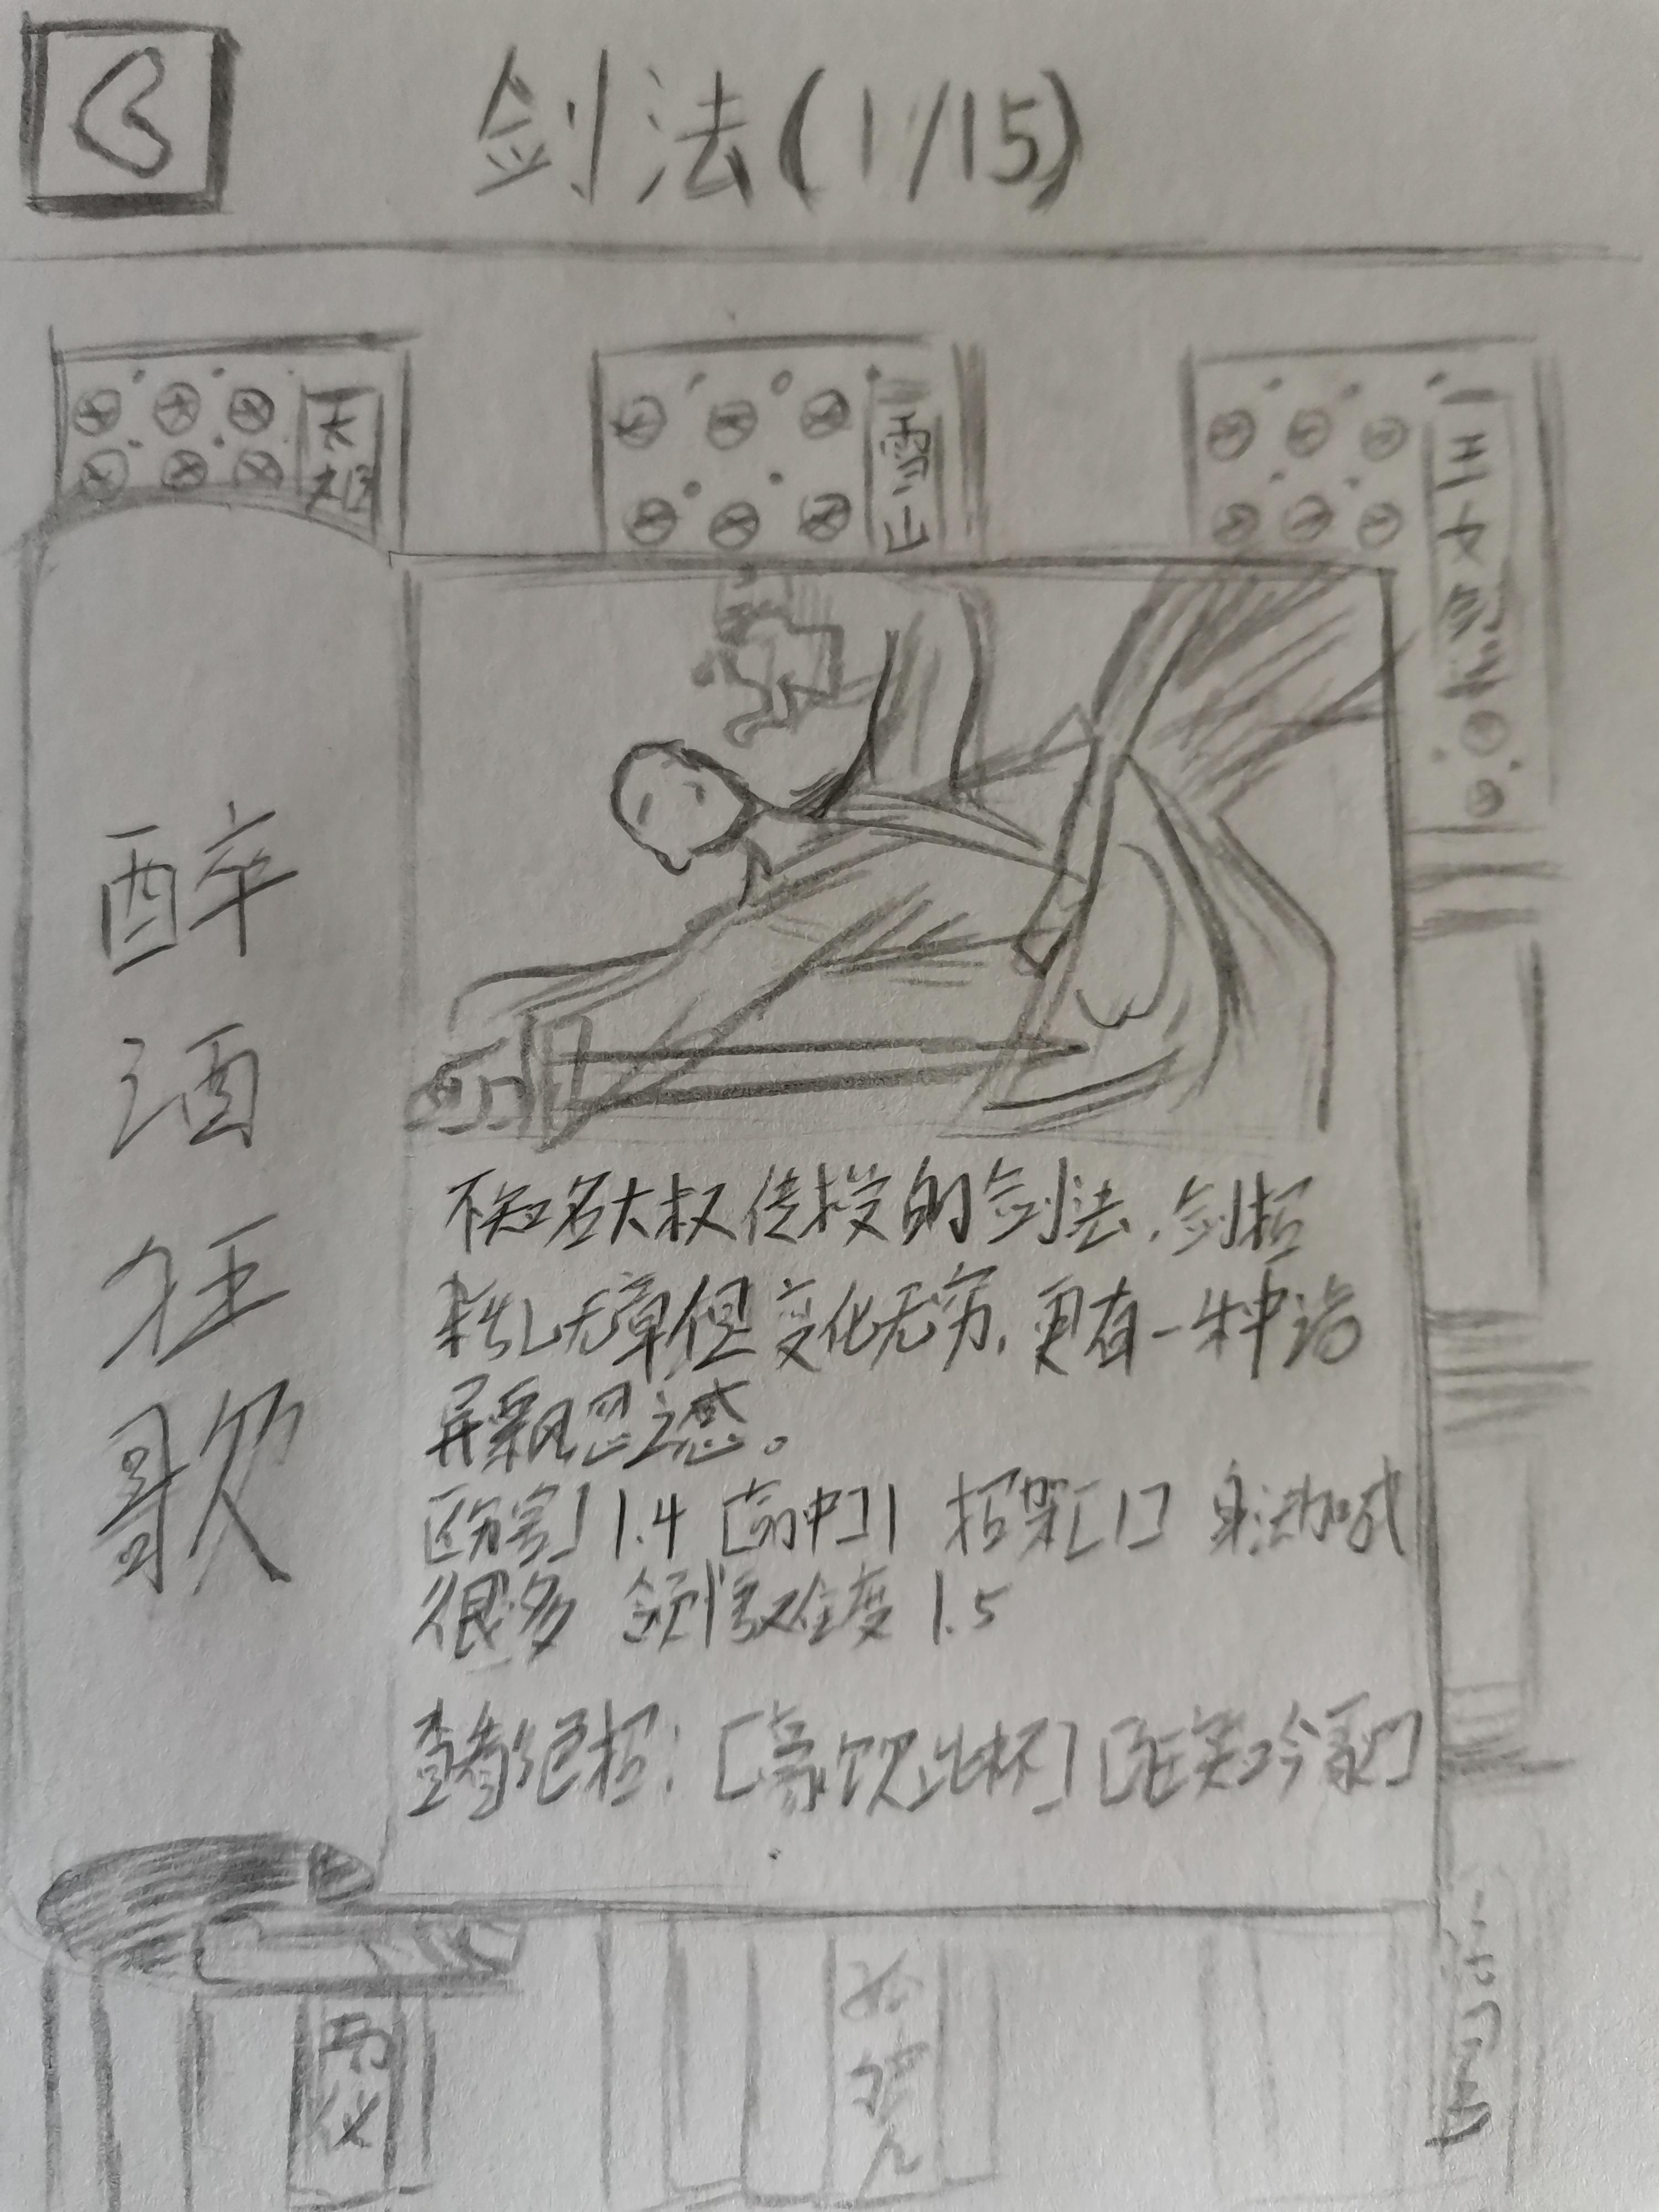 剑法(1/15)
醉酒狂歌
不知名大叔传授的剑法,剑招
杂乱无章但变化无穷,更有一种诡
异飘忽之感。
[伤害]1.4 [命中]1 招架[1] 身法加成
很多 领悟难度 1.5
查看绝招:[豪饮此杯][狂笑吟豪]
两仪